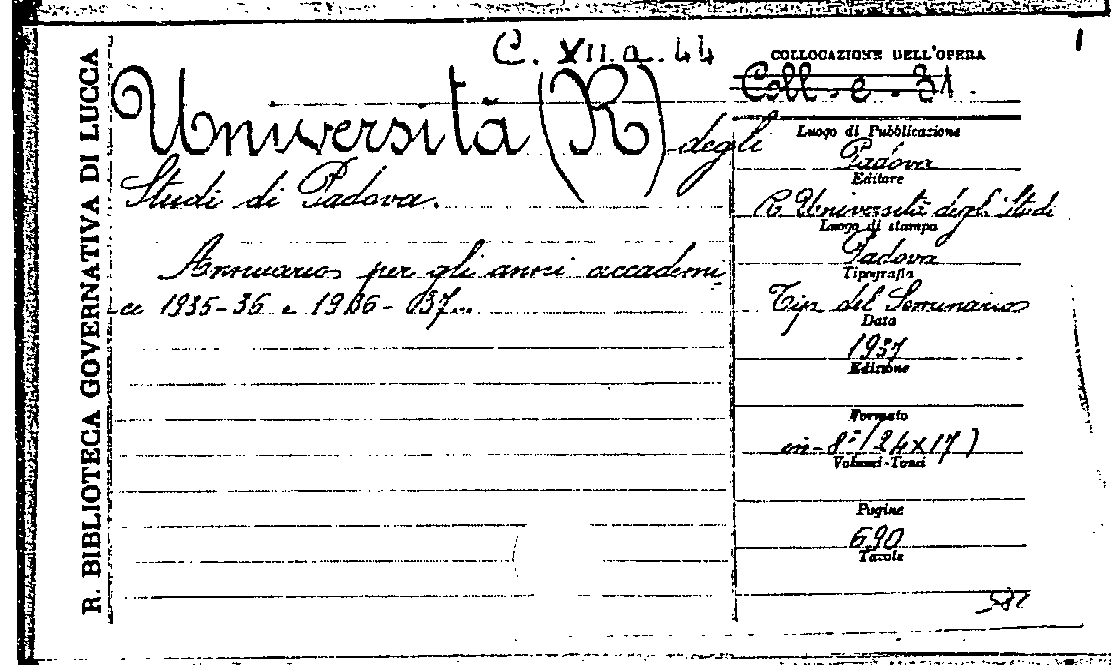 R. BIBLIOTECA GOVERNATIVA DI LUCCA
C. XII. a. 44
Università (R) degli
Studi di Padova.
Annuario per gli anni accademi
ci 1935-36 e 1936-37...
COLLOCAZIONE DELL'OPERA
Coll. e. 31.
Luogo di Pubblicazione
Padova
Editore
R Università degli Studi
Luogo di stampa
Padova
Tipografia
Tip del Seminario
Data
1937
Edizione
Formato
in-8° (24x17)
Volumi-Tomi
Pagine
690
Tavole